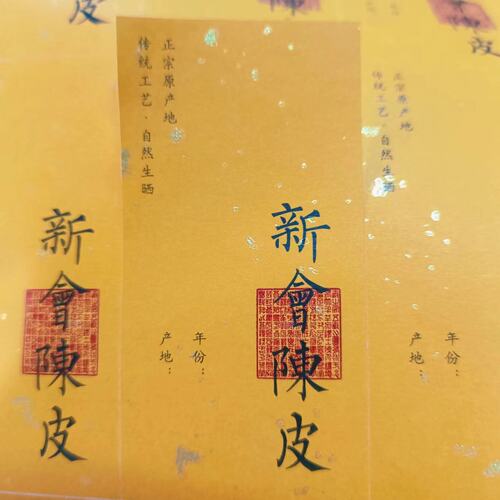 皮
陳
皮
正宗原产地
传统工艺·自然生晒
正宗原产地
传统工艺·自然生晒
新會陳皮
年份：
产地：
新會陳皮
年份：
产地：